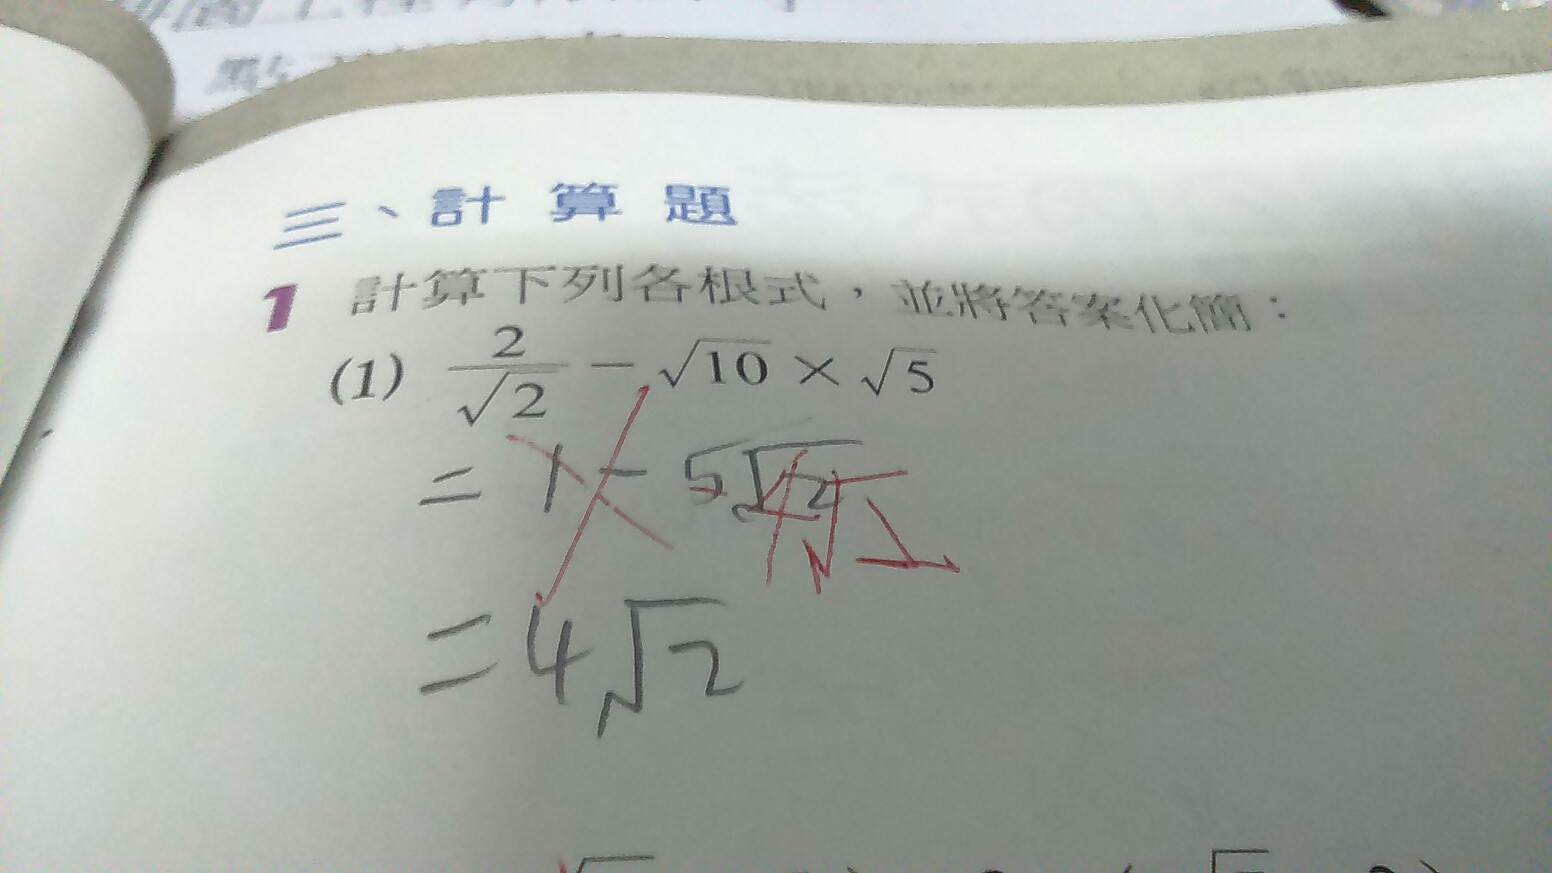 三、計算題
1 計算下列各根式，並將答案化簡：
(1) 2/√2 − √10 × √5
= 1 − 5√2
= 4√2